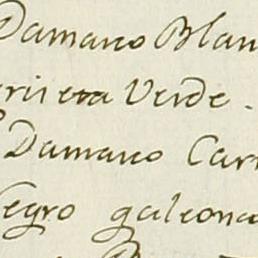 Damasco Blan
rrieta Verde.
Damasco Car
Negro galeona